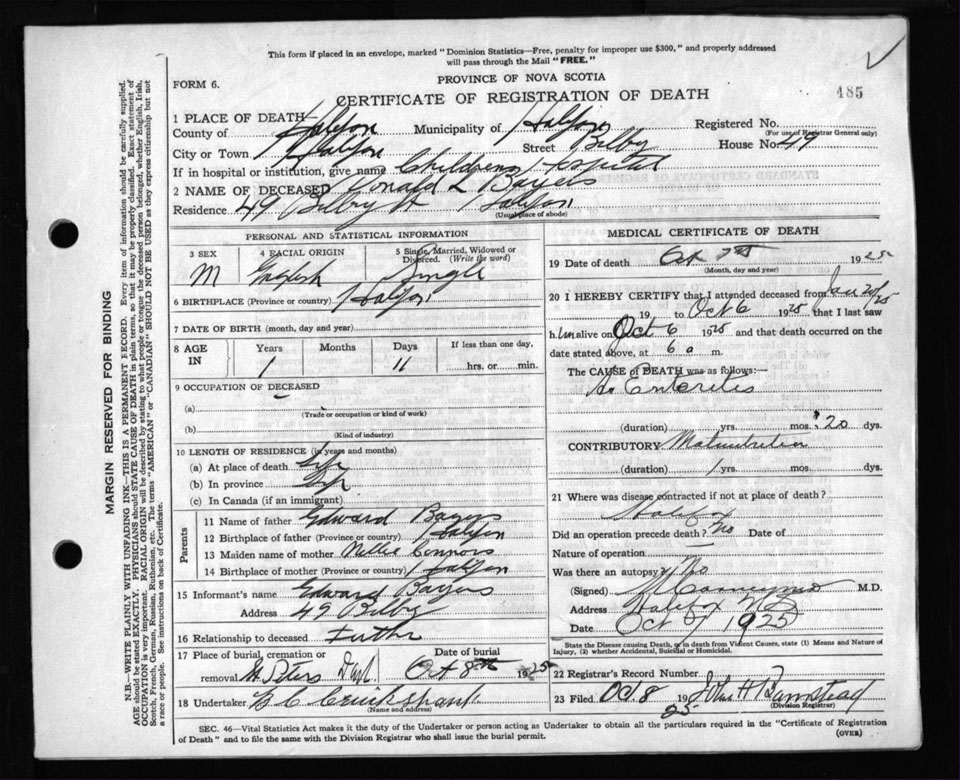 This form if placed in an envelope, marked "Dominion Statistics—Free, penalty for improper use $300," and properly addressed
will pass through the Mail "FREE."
FORM 6.
PROVINCE OF NOVA SCOTIA
485
CERTIFICATE OF REGISTRATION OF DEATH
1 PLACE OF DEATH
County of Halifax Municipality of Halifax Registered No.
(For use of Registrar General only)
City or Town Halifax Street Bilby House No. 49
If in hospital or institution, give name Childrens Hospital
2 NAME OF DECEASED Ronald L Bayers
Residence 49 Bilby St Halifax
(Usual place of abode)
PERSONAL AND STATISTICAL INFORMATION
3 SEX M
4 RACIAL ORIGIN English
5 Single, Married, Widowed or Divorced. (Write the word) Single
6 BIRTHPLACE (Province or country) Halifax
7 DATE OF BIRTH (month, day and year)
8 AGE IN
Years 1
Months
Days 11
If less than one day, hrs. or min.
9 OCCUPATION OF DECEASED
(a)
(Trade or occupation or kind of work)
(b)
(Kind of industry)
10 LENGTH OF RESIDENCE (in years and months)
(a) At place of death Life
(b) In province Life
(c) In Canada (if an immigrant)
Parents
11 Name of father Edward Bayers
12 Birthplace of father (Province or country) Halifax
13 Maiden name of mother Nellie Connors
14 Birthplace of mother (Province or country) Halifax
15 Informant's name Edward Bayers
Address 49 Bilby
16 Relationship to deceased Father
17 Place of burial, cremation or removal St Peters Dart
Date of burial Oct 8th 1925
18 Undertaker
(Name and address)
MEDICAL CERTIFICATE OF DEATH
19 Date of death Oct 7th 1925
(Month, day and year)
20 I HEREBY CERTIFY that I attended deceased from Jan 20/25
19 to Oct 6 1925 that I last saw
him alive on Oct 6 1925 and that death occurred on the
date stated above, at 6 a m.
The CAUSE of DEATH was as follows:—
Enteritis
(duration) yrs. mos. 20 dys.
CONTRIBUTORY Malnutrition
(duration) 1 yrs. mos. dys.
21 Where was disease contracted if not at place of death?
Halifax
Did an operation precede death? No Date of
Nature of operation
Was there an autopsy? No
(Signed) M.D.
Address Halifax NS
Date Oct 7 1925
State the Disease causing Death, or in death from Violent Causes, state (1) Means and Nature of
Injury, (2) whether Accidental, Suicidal or Homicidal.
22 Registrar's Record Number
23 Filed Oct 8 1925 John H Barnstead
(Division Registrar)
SEC. 46—Vital Statistics Act makes it the duty of the Undertaker or person acting as Undertaker to obtain all the particulars required in the "Certificate of Registration
of Death" and to file the same with the Division Registrar who shall issue the burial permit.
(OVER)
MARGIN RESERVED FOR BINDING
N.B.—WRITE PLAINLY WITH UNFADING INK—THIS IS A PERMANENT RECORD. Every item of information should be carefully supplied.
AGE should be stated EXACTLY. PHYSICIANS should STATE CAUSE OF DEATH in plain terms, so that it may be properly classified. Exact statement of
OCCUPATION is very important. RACIAL ORIGIN will be described by stating to what people or tongue the deceased person belonged, whether English, Irish,
Scotch, French, German, Russian, Ruthenian, etc. The terms "AMERICAN" or "CANADIAN" SHOULD NOT BE USED as they express citizenship but not
a race or people. See instructions on back of Certificate.